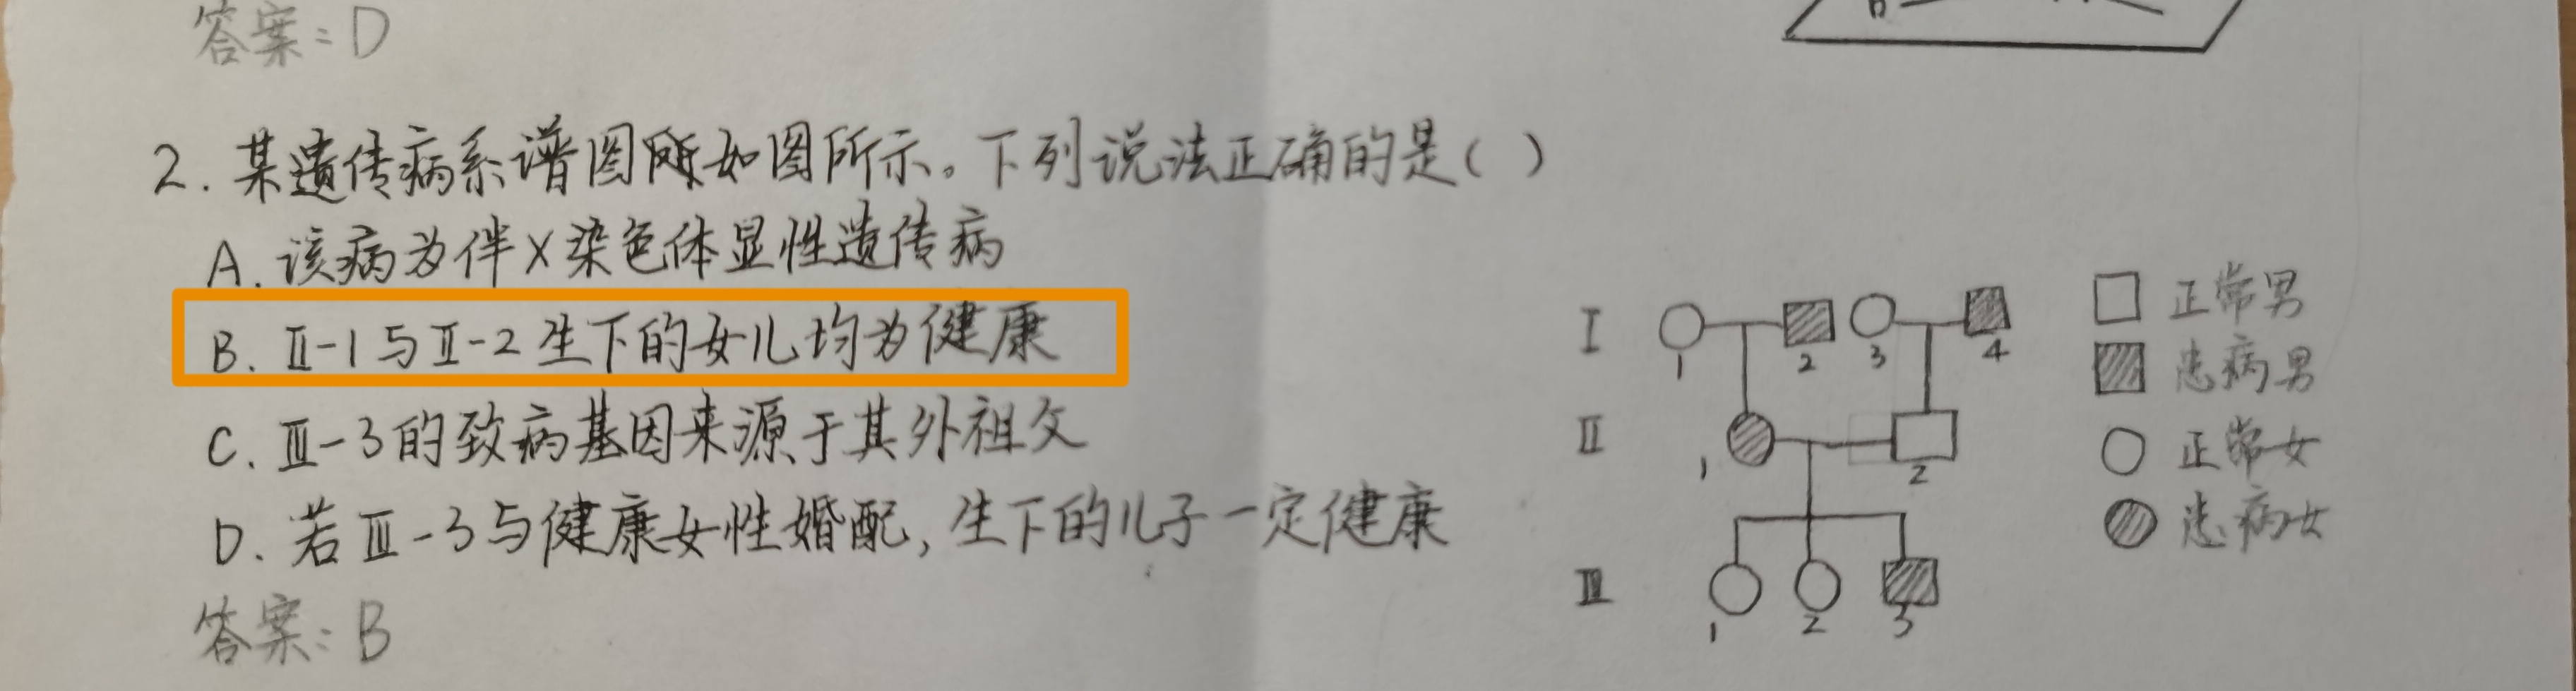 答案：D
2. 某遗传病系谱图如图所示。下列说法正确的是（ ）
A. 该病为伴X染色体显性遗传病
B. Ⅱ-1与Ⅱ-2生下的女儿均为健康
C. Ⅲ-3的致病基因来源于其外祖父
D. 若Ⅲ-3与健康女性婚配，生下的儿子一定健康
答案：B
Ⅰ 1 2 3 4
Ⅱ 1 2
Ⅲ 1 2 3
正常男
患病男
正常女
患病女